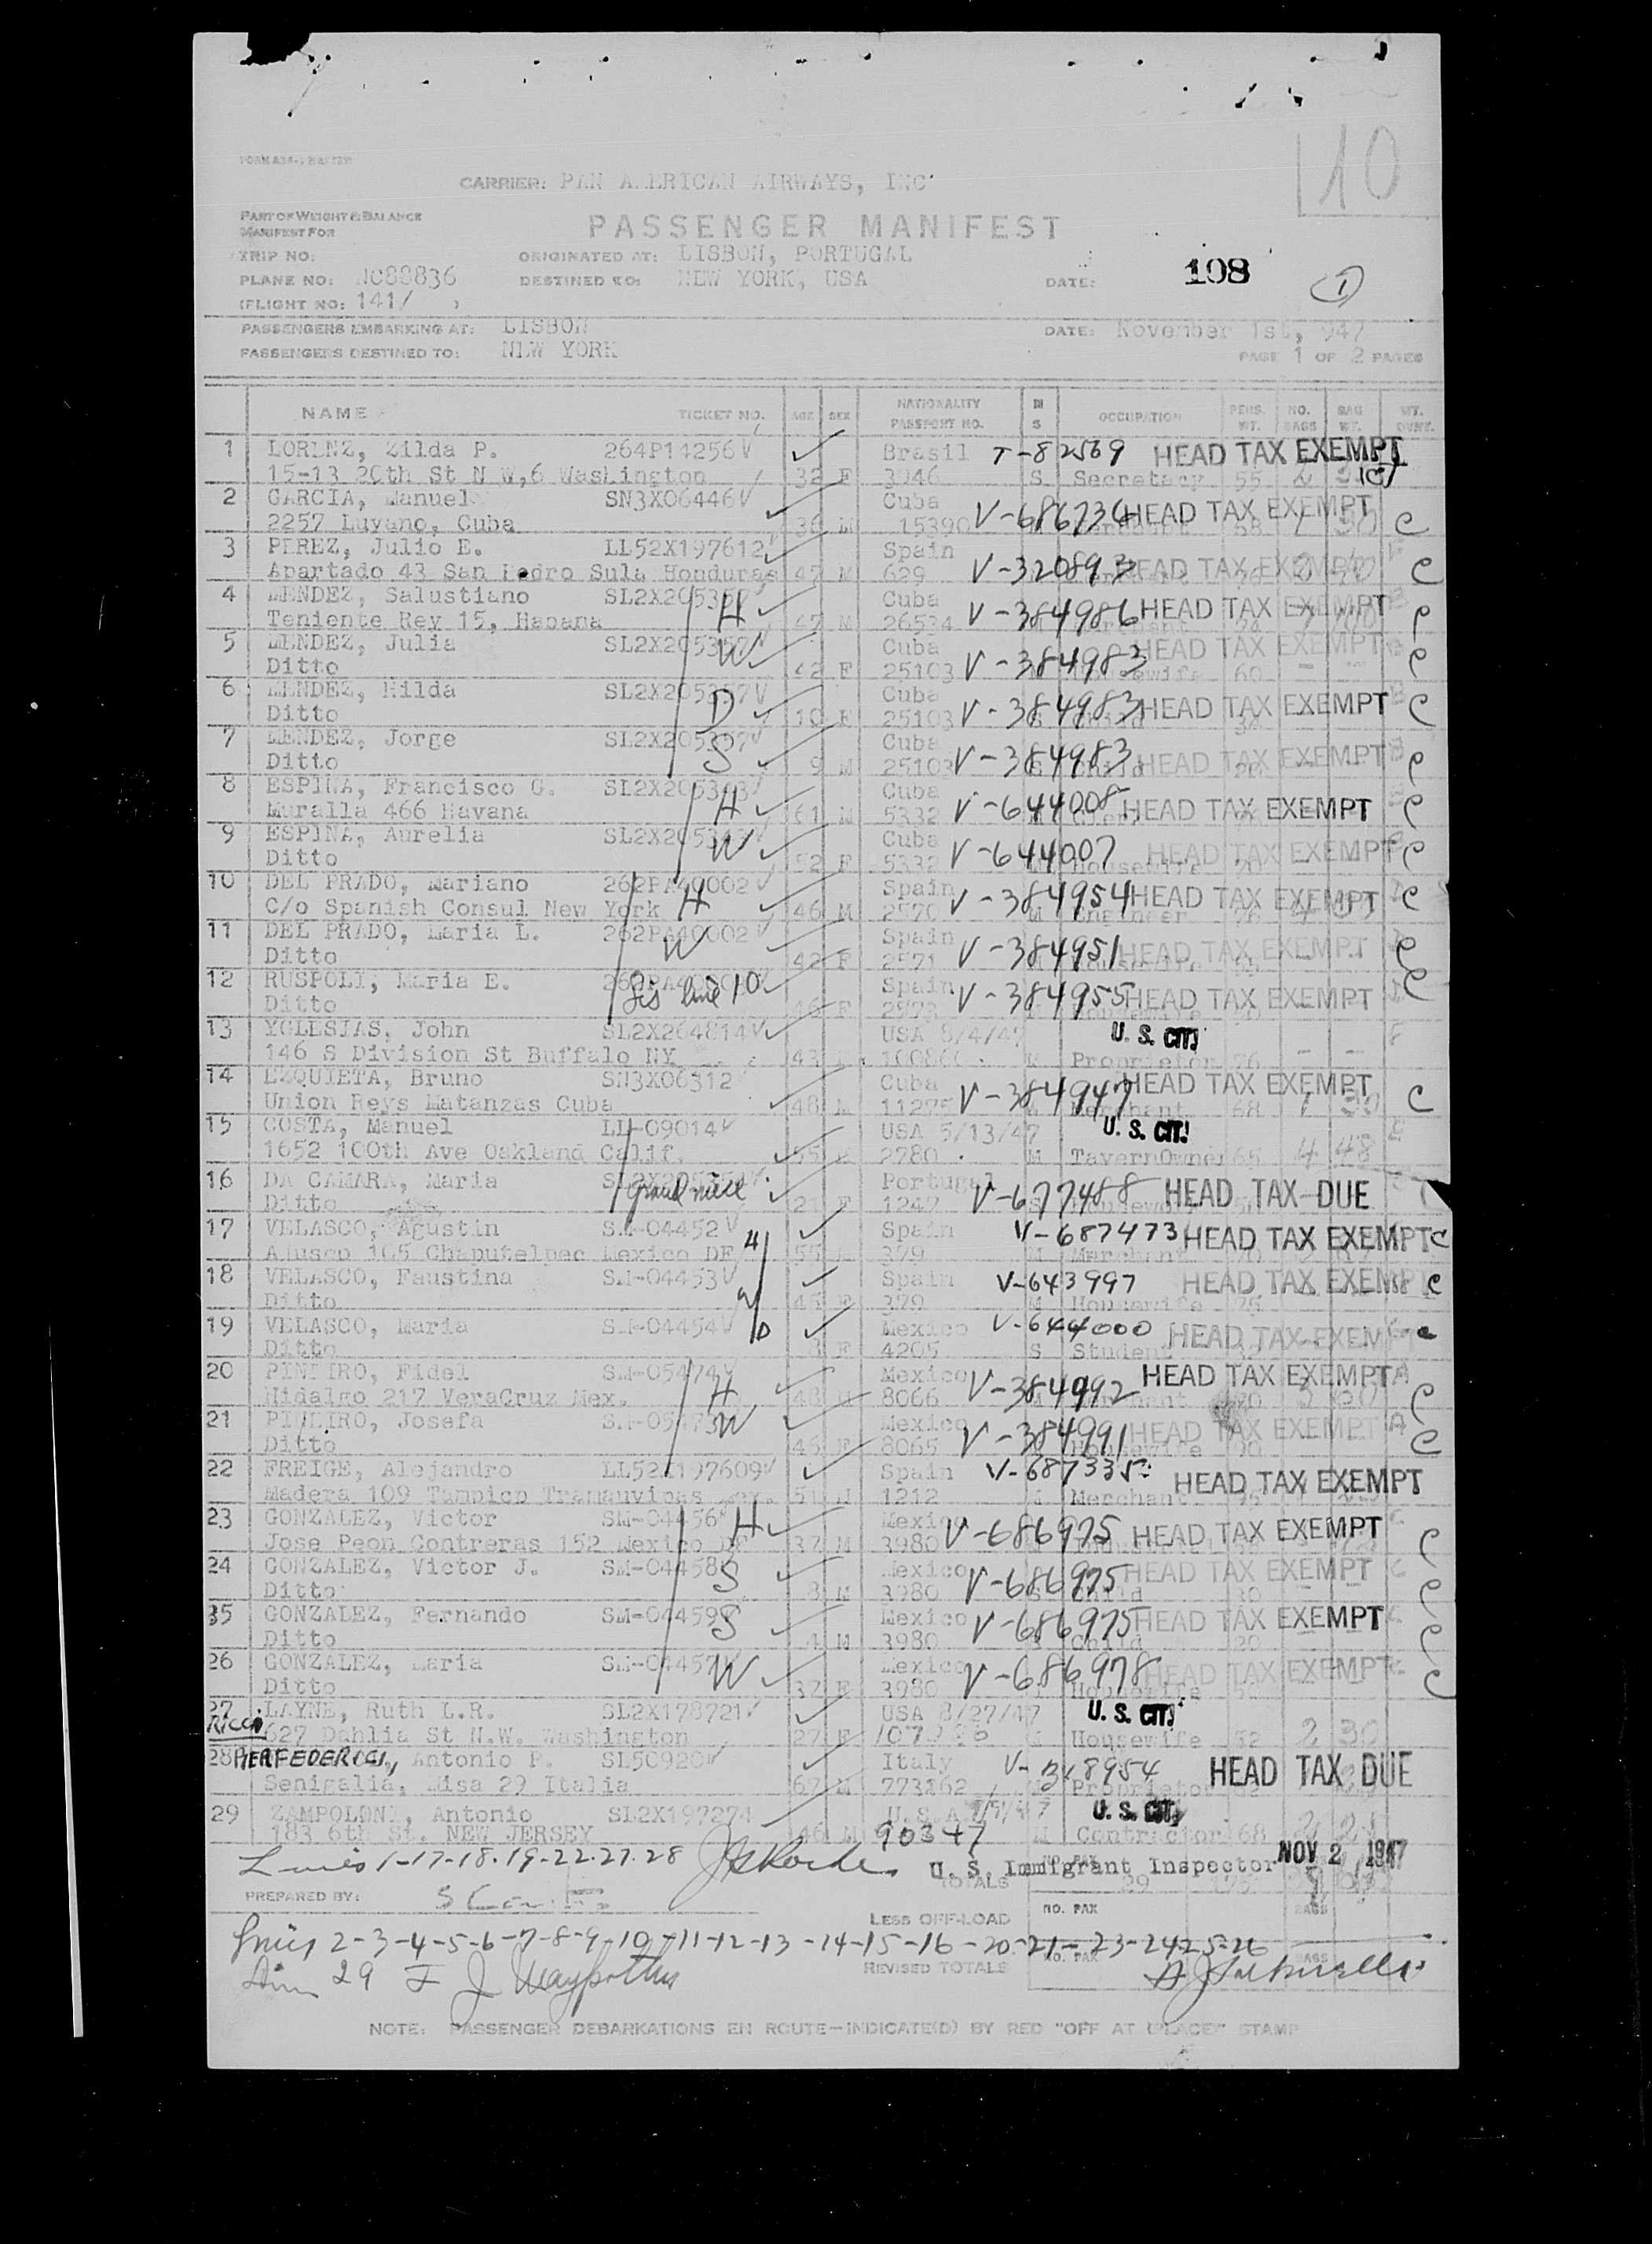 10
CARRIER: PAN A.ERICAN AIRWAYS, INC
PART OF WEIGHT & BALANCE
MANIFEST FOR
PASSENGER MANIFEST
TRIP NO:
ORIGINATED AT: LISBON, PORTUGAL
PLANE NO: NC88836
DESTINED TO: NEW YORK, USA
DATE: 108
1
(FLIGHT NO: 141/ )
PASSENGERS EMBARKING AT: LISBON
DATE: November 1st, 947
PASSENGERS DESTINED TO: NEW YORK
PAGE 1 OF 2 PAGES
NAME TICKET NO. AGE SEX NATIONALITY PASSPORT NO. M S OCCUPATION PERS. WT. NO. BAGS BAG WT.
1 LORENZ, Zilda P. 264P14256 Brasil T-82569 HEAD TAX EXEMPT
15-13 20th St N W,6 Washington 32 F 3946 S Secretary 55
2 GARCIA, Manuel SN3X06446 Cuba
2257 Luyano, Cuba 36 M 15390 V-686736 HEAD TAX EXEMPT C
3 PEREZ, Julio E. LL52X197612 Spain
Apartado 43 San Pedro Sula Honduras 47 M 629 V-320893 HEAD TAX EXEMPT C
4 MENDEZ, Salustiano SL2X205357 H Cuba
Teniente Rey 15, Habana 47 M 26534 V-384986 HEAD TAX EXEMPT C
5 MENDEZ, Julia SL2X205357 W Cuba HEAD TAX EXEMPT
Ditto 42 F 25103 V-384983 Housewife 60 C
6 MENDEZ, Hilda SL2X205357 D Cuba
Ditto 10 F 25103 V-384983 HEAD TAX EXEMPT C
7 MENDEZ, Jorge SL2X205357 S Cuba
Ditto 9 M 25103 V-384983 HEAD TAX EXEMPT C
8 ESPINA, Francisco G. SL2X205343 H Cuba
Muralla 466 Havana 61 M 5332 V-644008 HEAD TAX EXEMPT C
9 ESPINA, Aurelia SL2X205343 W Cuba
Ditto 52 F 5332 V-644007 HEAD TAX EXEMPT C
Housewife
10 DEL PRADO, Mariano 262PA40002 H Spain
C/o Spanish Consul New York 46 M 2570 V-384954 HEAD TAX EXEMPT C
M Engineer
11 DEL PRADO, Maria L. 262PA40002 W Spain
Ditto 42 F 2571 V-384951 HEAD TAX EXEMPT C
12 RUSPOLI, Maria E. Sis line 10 Spain
Ditto 46 F 2573 V-384955 HEAD TAX EXEMPT C
13 YGLESIAS, John SL2X264814 USA 8/4/47 U. S. CIT.
146 S Division St Buffalo NY 43 100860 M Proprietor 76
14 EZQUIETA, Bruno SN3X06312 Cuba
Union Reys Matanzas Cuba 48 M 11275 V-384947 HEAD TAX EXEMPT C
Merchant 68 1 30
15 COSTA, Manuel LL-09014 USA 5/13/47 U. S. CIT.
1652 100th Ave Oakland Calif. 55 2780 M TavernOwner 65 4 48
16 DA CAMARA, Maria Grand niece Portugal
Ditto 21 F 1247 V-677488 HEAD TAX DUE
17 VELASCO, Agustin SM-04452 H Spain V-687473 HEAD TAX EXEMPT C
Ajusco 105 Chaputelpec Mexico DF 55 379 M Merchant
18 VELASCO, Faustina SM-04453 W Spain V-643997 HEAD TAX EXEMPT C
Ditto 45 F 379 M Housewife 75
19 VELASCO, Maria SM-04454 D Mexico V-644000 HEAD TAX EXEMPT C
Ditto 8 F 4205 S Student
20 PINEIRO, Fidel SM-05474 H Mexico HEAD TAX EXEMPT
Hidalgo 217 VeraCruz Mex. 48 M 8066 V-384992 C
21 PINEIRO, Josefa SM-05473 W Mexico
Ditto 46 F 8065 V-384991 HEAD TAX EXEMPT C
Housewife 90
22 FREIGE, Alejandro LL52X197609 Spain V-687335
Madera 109 Tampico Tramauvipas 51 M 1212 Merchant HEAD TAX EXEMPT
23 GONZALEZ, Victor SM-04456 H Mexico
Jose Peon Contreras 152 Mexico DF 37 M 3980 V-686975 HEAD TAX EXEMPT C
24 GONZALEZ, Victor J. SM-04458 S Mexico
Ditto 8 M 3980 V-686975 HEAD TAX EXEMPT C
Child 30
35 GONZALEZ, Fernando SM-04459 S Mexico
Ditto 4 M 3980 V-686975 HEAD TAX EXEMPT C
Child 20
26 GONZALEZ, Maria SM-04457 W Mexico
Ditto 37 F 3980 V-686978 HEAD TAX EXEMPT C
Housewife
27 LAYNE, Ruth L.R. SL2X178721 USA 8/27/47 U. S. CIT.
627 Dahlia St N.W. Washington 27 F Housewife 52 2 30
RICCI
28 PIERFEDERICI, Antonio P. SL50920 Italy HEAD TAX DUE
Senigalia, Misa 29 Italia 67 M 773162 Proprietor
29 ZAMPOLONI, Antonio SL2X197274 U.S.A U. S. CIT.
183 6th St. NEW JERSEY 46 M 90347 M Contractor 68
Lines 1-17-18-19-22-27-28 U. S. Immigrant Inspector NOV 2 1947
TOTALS NO. PAX 29
PREPARED BY:
LESS OFF-LOAD NO. PAX BAGS
Lines 2-3-4-5-6-7-8-9-10-11-12-13-14-15-16-20-21-23-24-25-26
REVISED TOTALS NO. PAX BAGS
29
NOTE: PASSENGER DEBARKATIONS EN ROUTE—INDICATE(D) BY RED "OFF AT (PLACE)" STAMP